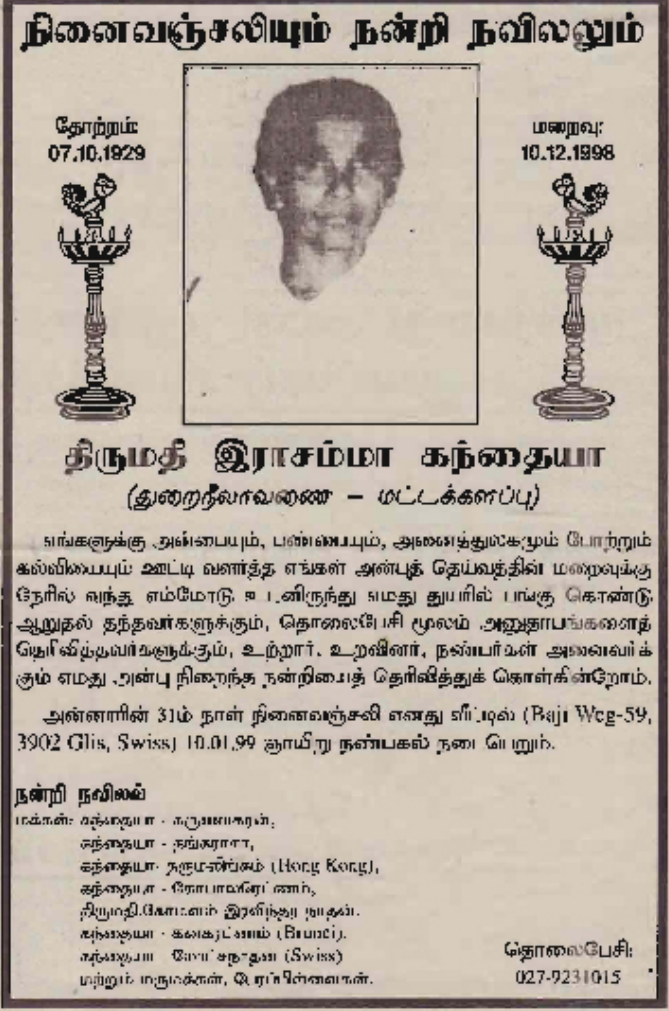 நினைவஞ்சலியும் நன்றி நவிலலும்
தோற்றம்:
07.10.1929
மறைவு:
10.12.1998
திருமதி இராசம்மா கந்தையா
(துறைநீலாவணை – மட்டக்களப்பு)
எங்களுக்கு அன்பையும், பண்பையும், அனைத்துலகமும் போற்றும்
கல்வியையும் ஊட்டி வளர்த்த எங்கள் அன்புத் தெய்வத்தின் மறைவுக்கு
நேரில் வந்து எம்மோடு உடனிருந்து எமது துயரில் பங்கு கொண்டு
ஆறுதல் தந்தவர்களுக்கும், தொலைபேசி மூலம் அனுதாபங்களைத்
தெரிவித்தவர்களுக்கும், உற்றார், உறவினர், நண்பர்கள் அனைவர்க்
கும் எமது அன்பு நிறைந்த நன்றியைத் தெரிவித்துக் கொள்கின்றோம்.
அன்னாரின் 31ம் நாள் நினைவஞ்சலி எனது வீட்டில் (Baji Weg-59,
3902 Glis, Swiss) 10.01.99 ஞாயிறு நண்பகல் நடைபெறும்.
நன்றி நவிலல்
மக்கள்: கந்தையா - கருணாகரன்,
கந்தையா - தங்கராசா,
கந்தையா- தருமலிங்கம் (Hong Kong),
கந்தையா - கோபாலரெட்ணம்,
திருமதி.கோமளம் இரவிந்திர நாதன்.
கந்தையா - கனகரட்ணம் (Brunei).
கந்தையா - (Swiss)
மற்றும் மருமக்கள், பேரப்பிள்ளைகள்.
தொலைபேசி:
027-9231015